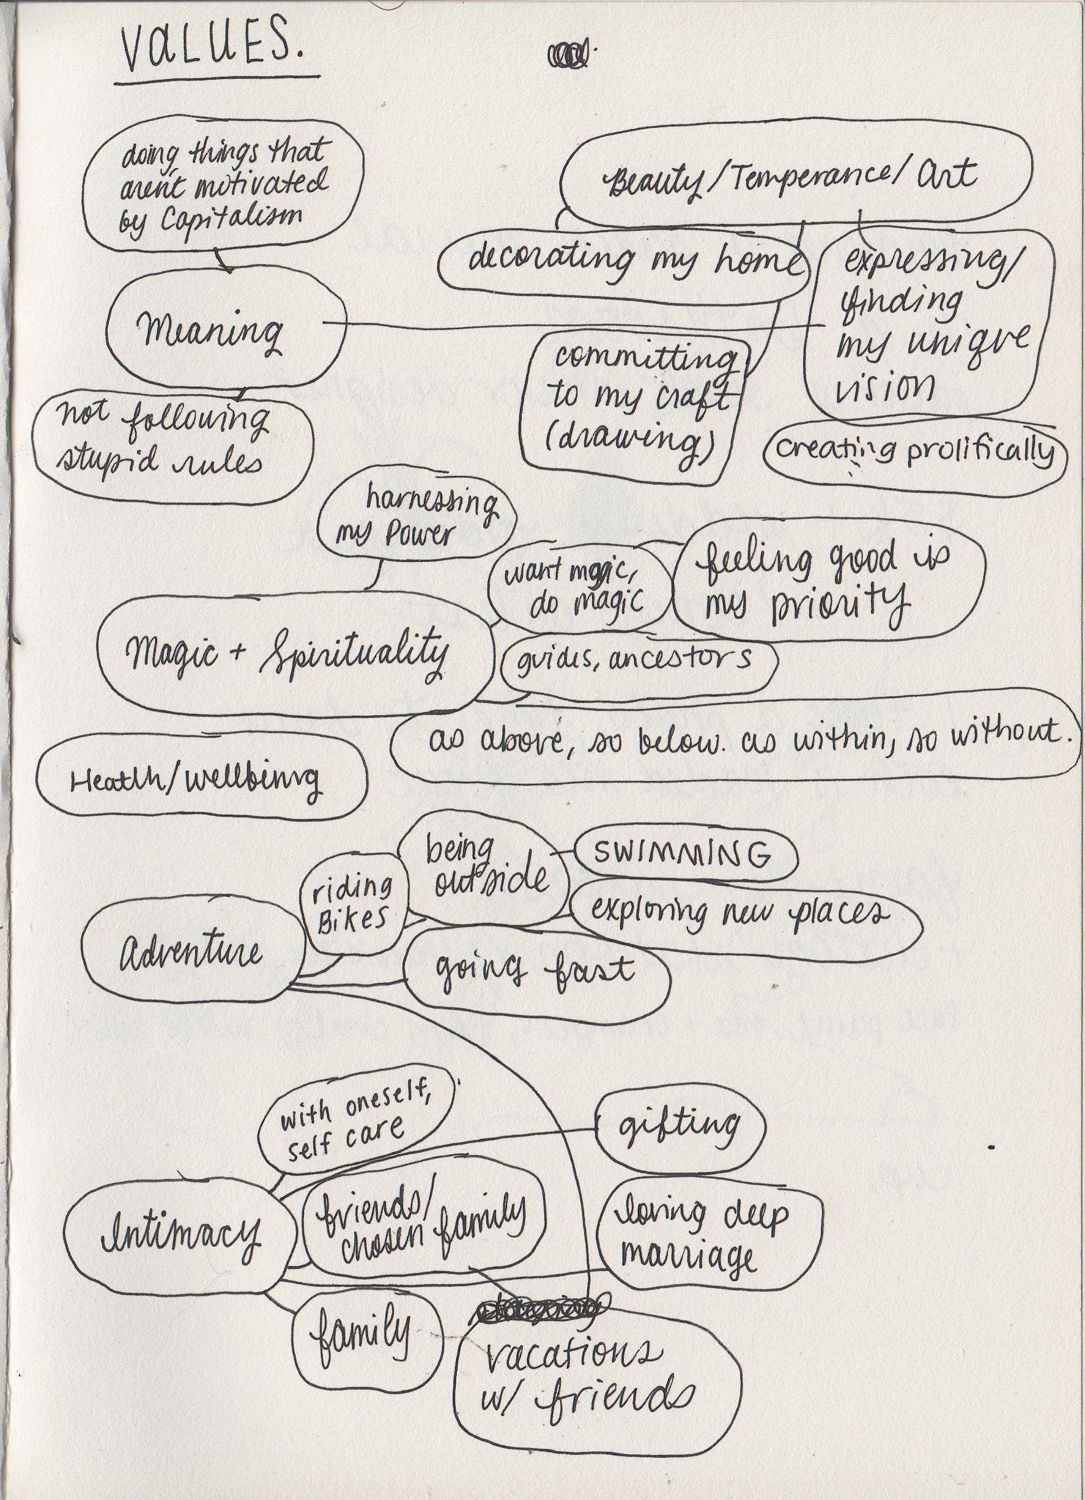 VALUES.
doing things that
aren't motivated
by Capitalism
Beauty/Temperance/Art
decorating my home
expressing/
finding
my unique
vision
Meaning
committing
to my craft
(drawing)
not following
stupid rules
creating prolifically
harnessing
my Power
want magic,
do magic
feeling good is
my priority
Magic + Spirituality
guides, ancestors
as above, so below. as within, so without.
Health/wellbeing
being
outside
SWIMMING
riding
Bikes
exploring new places
Adventure
going fast
with oneself,
self care
gifting
Intimacy
friends/
chosen family
loving deep
marriage
family
vacations
w/ friends